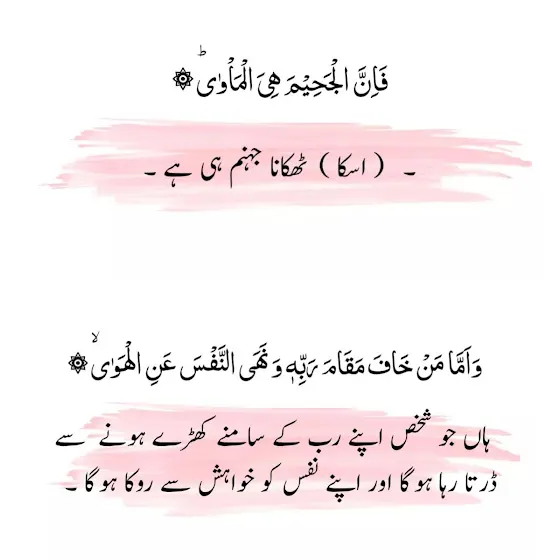 فَاِنَّ الْجَحِيْمَ هِيَ الْمَاْوٰىؕ ۞
۔ ( اسکا ) ٹھکانا جہنم ہی ہے ۔
وَ اَمَّا مَنْ خَافَ مَقَامَ رَبِّهٖ وَ نَهَى النَّفْسَ عَنِ الْهَوٰىۙ ۞
ہاں جو شخص اپنے رب کے سامنے کھڑے ہونے سے
ڈرتا رہا ہوگا اور اپنے نفس کو خواہش سے روکا ہوگا ۔